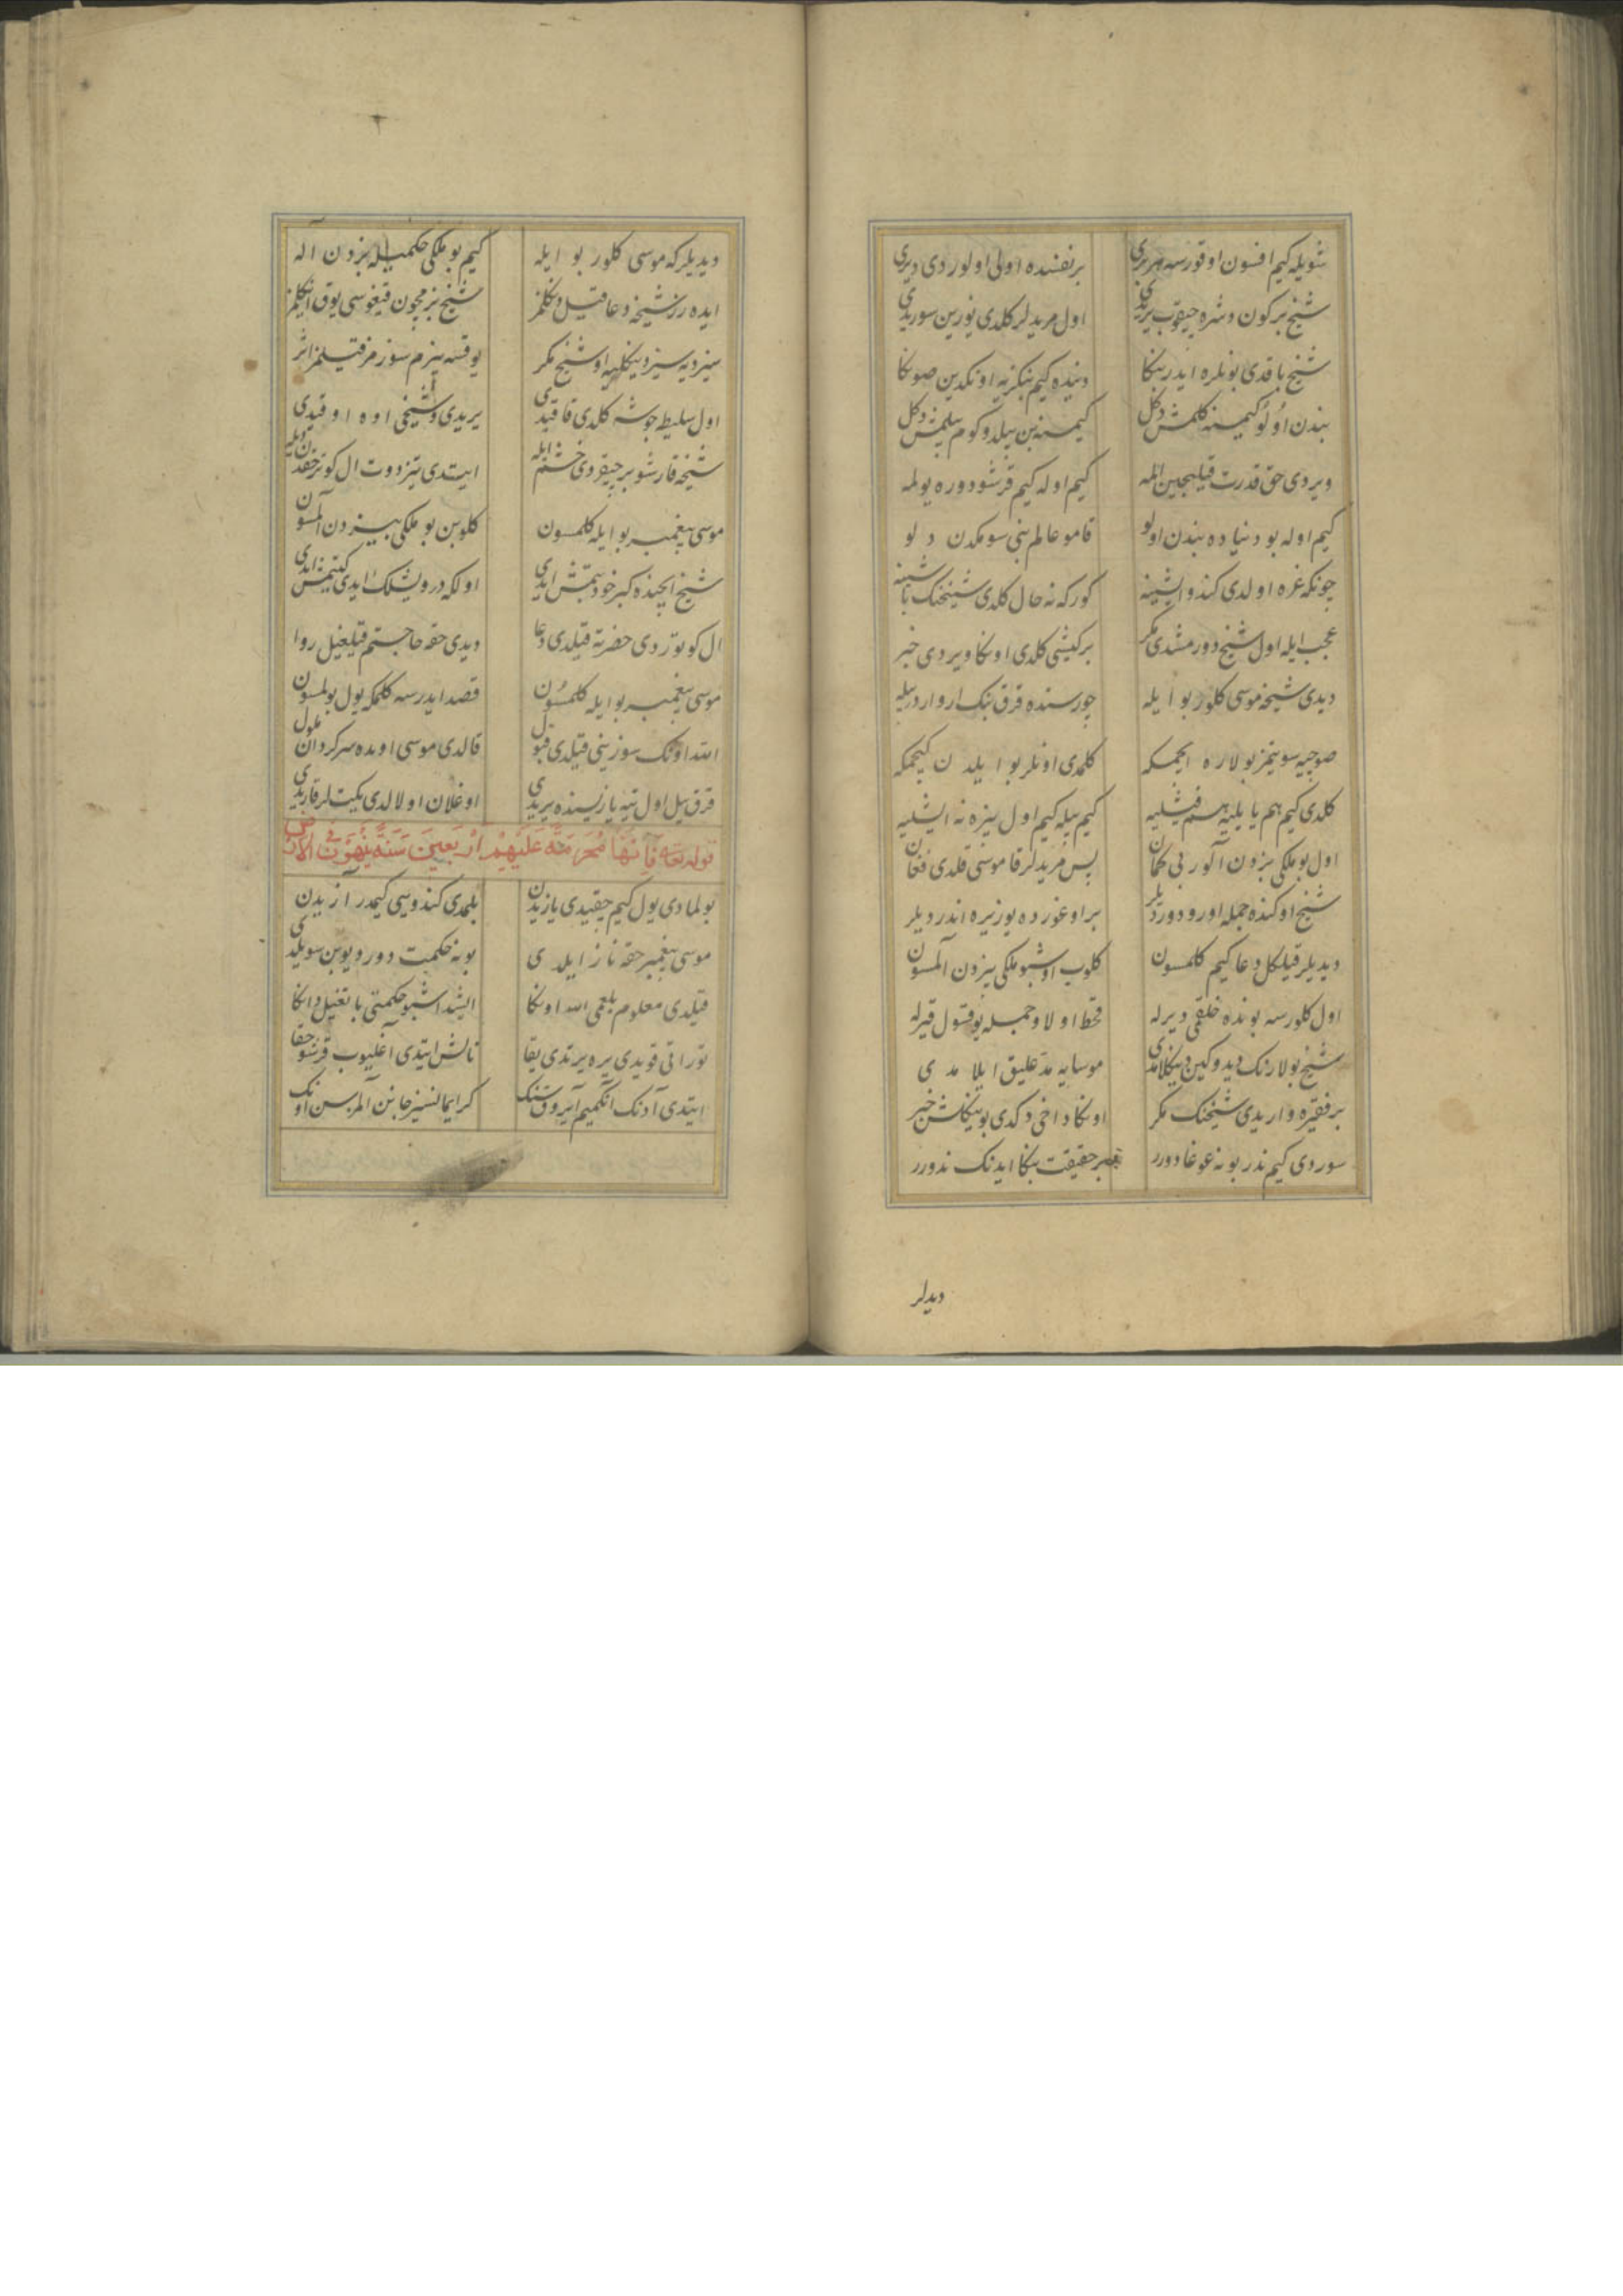 شویله کیم افسون اوقورسه هر بری برنفسده اولی اولوردی دیری
شیخ برکون دشره چیقوب یریدی اول مریدلر کلدی یوزین سوریدی
شیخ باقدی بونلره ایدر بنکا دنیده کیم بنکزیه اونکدین صونکا
بندن اولو کیمسنه کلمش دکل کیمسنه بن بیلدوکوم بیلمش دکل
ویردی حق قدرت قیلیجین المه کیم اوله کیم قرشو دوره یولمه
کیم اوله بو دنیاده بندن اولو قامو عالم بنی سومکدن دلو
چونکه غره اولدی کندو ایشینه کورکه نه حال کلدی شیخنک باشینه
عجب ایله اول شیخ دورمشدی مکر برکیشی کلدی اونکا ویردی خبر
دیدی شیخه موسی کلور بو ایله چورسنده قرق بنک ار واردر بیله
صوچیه سویتمز بولاره ایچمکه کلمدی اونلر بو ایلدن کیچمکه
کلدی کیم هم یایلیه هم قیشلیه کیم بیله کیم اول بیزه نه ایشلیه
اول بو ملکی بزدن آلور بی کمان پس مریدلر قاموسی قلدی فغان
شیخ اوکنده جمله اورو دوردیلر بر اوغورده یوز یره اندردیلر
دیدیلر قیلکل دعا کیم کلمسون کلوب اوشبو ملکی بیزدن آلمسون
اول کلورسه بونده خلقی دیرله قحط اولا و جمله یوقسول قیرله
شیخ بولارنک دیدوکین دینکلامدی موسایه مدعلیق ایلامدی
بر فقیره واریدی شیخنک مکر اونکا داخی دکدی بو ینکاشن خبر
سوردی کیم ندر بو نه غوغا دورر حقیقت بنکا ایدنک ندورر
دیدلر
دیدیلر که موسی کلور بو ایله کیم بو ملکی حکمیله بزدن آله
ایده رز شیخه دعا قیل دنکلمز شیخ بزمچون قیغوسی یوق انکلمز
سیز دیه سیز دینکلیه اوش شیخ مکر یوقسه بیزم سوزمز قیلمز اثر
اول سلیطه جوشه کلدی قاقیدی یریدی و شیخی اوه اوقیدی
شیخه قارشو بر چیقردی خشم ایله ایتدی تیز دوت ال کوتر حقدن دیله
موسی پیغمبر بو ایله کلمسون کلوبن بو ملکی بیزدن آلمسون
شیخ ایچنده کبر خود بتمش ایدی اولکه درویشلک ایدی کیتمش ایدی
ال کوتوردی حضرته قیلدی دعا دیدی حقه حاجتم قیلغیل روا
موسی پیغمبر بو ایله کلمسون قصد ایدرسه کلمکه یول بولمسون
الله اونک سوزینی قیلدی قبول قالدی موسی اوبده سرکردان ملول
قرق ییل اول تیه یازیسنده یریدی اوغلان اولالدی یکیتلر قاریدی
قوله تعه فَاِنَّهَا مُحَرَّمَةٌ عَلَيْهِمْ اَرْبَعِينَ سَنَةً يَتِيهُونَ فِي الْاَرْضِ
بولمادی یول کیم چقیدی یازیدن بلمدی کندوسی کیمدر آزیدن
موسی پیغمبر حقه ناز ایلدی بو نه حکمت دورو دیوبن سویلدی
قیلدی معلوم بلعمی الله اونکا ایشد اشبو حکمتی باتغیل دانکا
توراتی قویدی یره یرتدی یقا نالش ایتدی اغلیوب قرشو حقا
ایتدی آدنک انکمیم آیروقسنک کر ایمانسیز جانین آلمزسن اونک